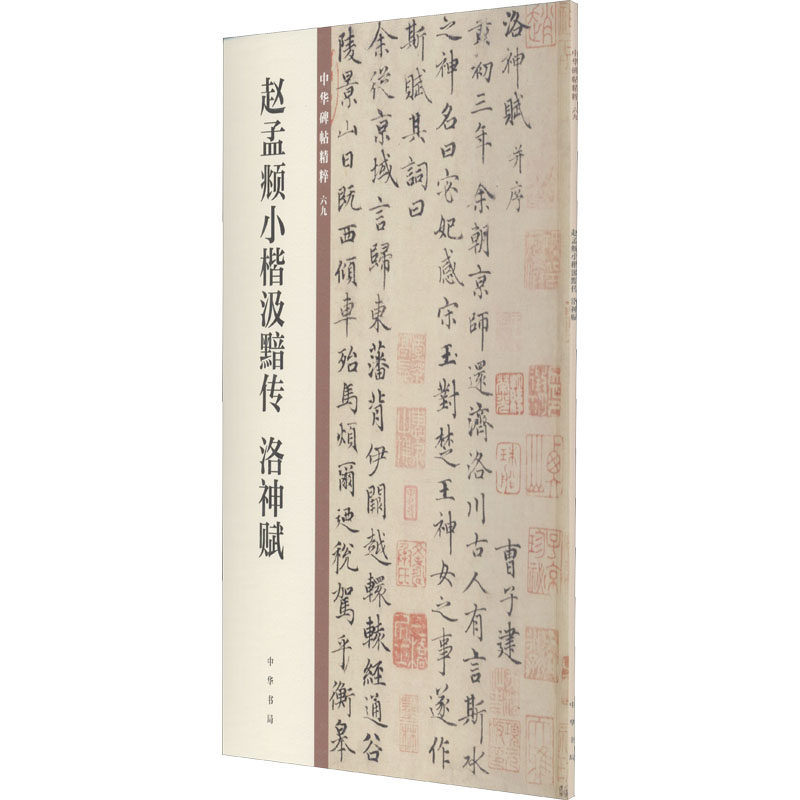 赵孟頫小楷汲黯传 洛神赋
中华书局
中华碑帖精粹 六九
洛神賦 并序 曹子建
黄初三年余朝京師還濟洛川古人有言斯水
之神名曰宓妃感宋玉對楚王神女之事遂作
斯賦其詞曰
余從京域言歸東藩背伊闕越轘轅經通谷
陵景山日既西傾車殆馬煩爾廼稅駕乎蘅皋
中华碑帖精粹 六九
赵孟頫小楷汲黯传 洛神赋
中华书局